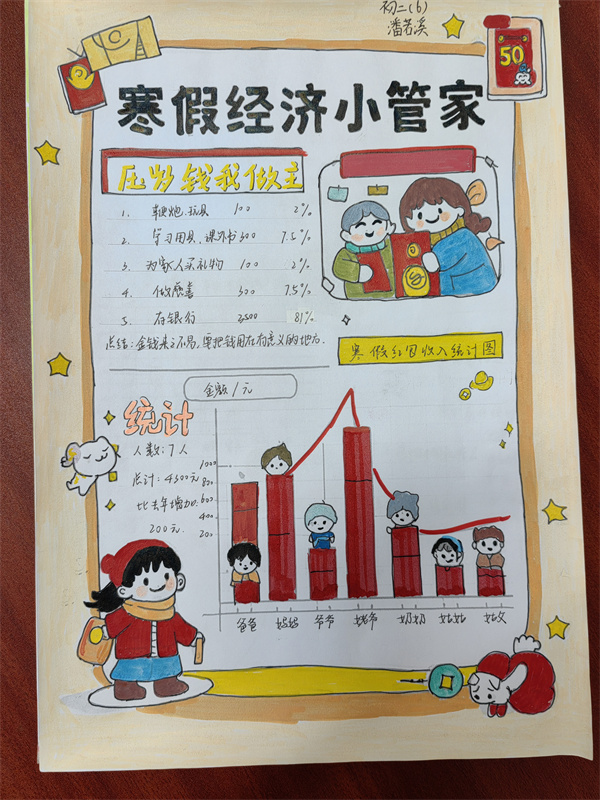 初二(6)
潘若溪
50
寒假经济小管家
压岁钱我做主
1. 鞭炮.玩具 100 2%
2. 学习用具、课外书 300 7.5%
3. 为家人买礼物 100 2%
4. 做慈善 300 7.5%
5. 存银行 3,500 81%
总结:金钱来之不易,要把钱用在有意义的地方.
寒假红包收入统计图
金额/元
统计
人数:7人
总计:4300元
比去年增加
200元.
1000
800
600
400
200
爸爸 妈妈 爷爷 姥爷 奶奶 姑姑 姑父